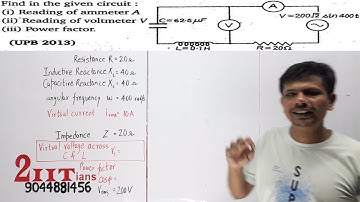 Find in the given circuit :
(i) Reading of ammeter A
(ii) Reading of voltmeter V
(iii) Power factor.
(UPB 2013)
A
C=62.5μF
V
V=200√2 sin 400t
L=0.1H
R=20Ω
Resistance R=20Ω
Inductive Reactance XL=40Ω
Capacitive Reactance XC=40Ω
angular frequency ω=400 rad/s
Virtual current Irms=10A
Impedance Z=20Ω
Virtual voltage across
C & L V1=
Power factor
cosφ=
Vrms=200V
2IITians
9044881456
SUPER